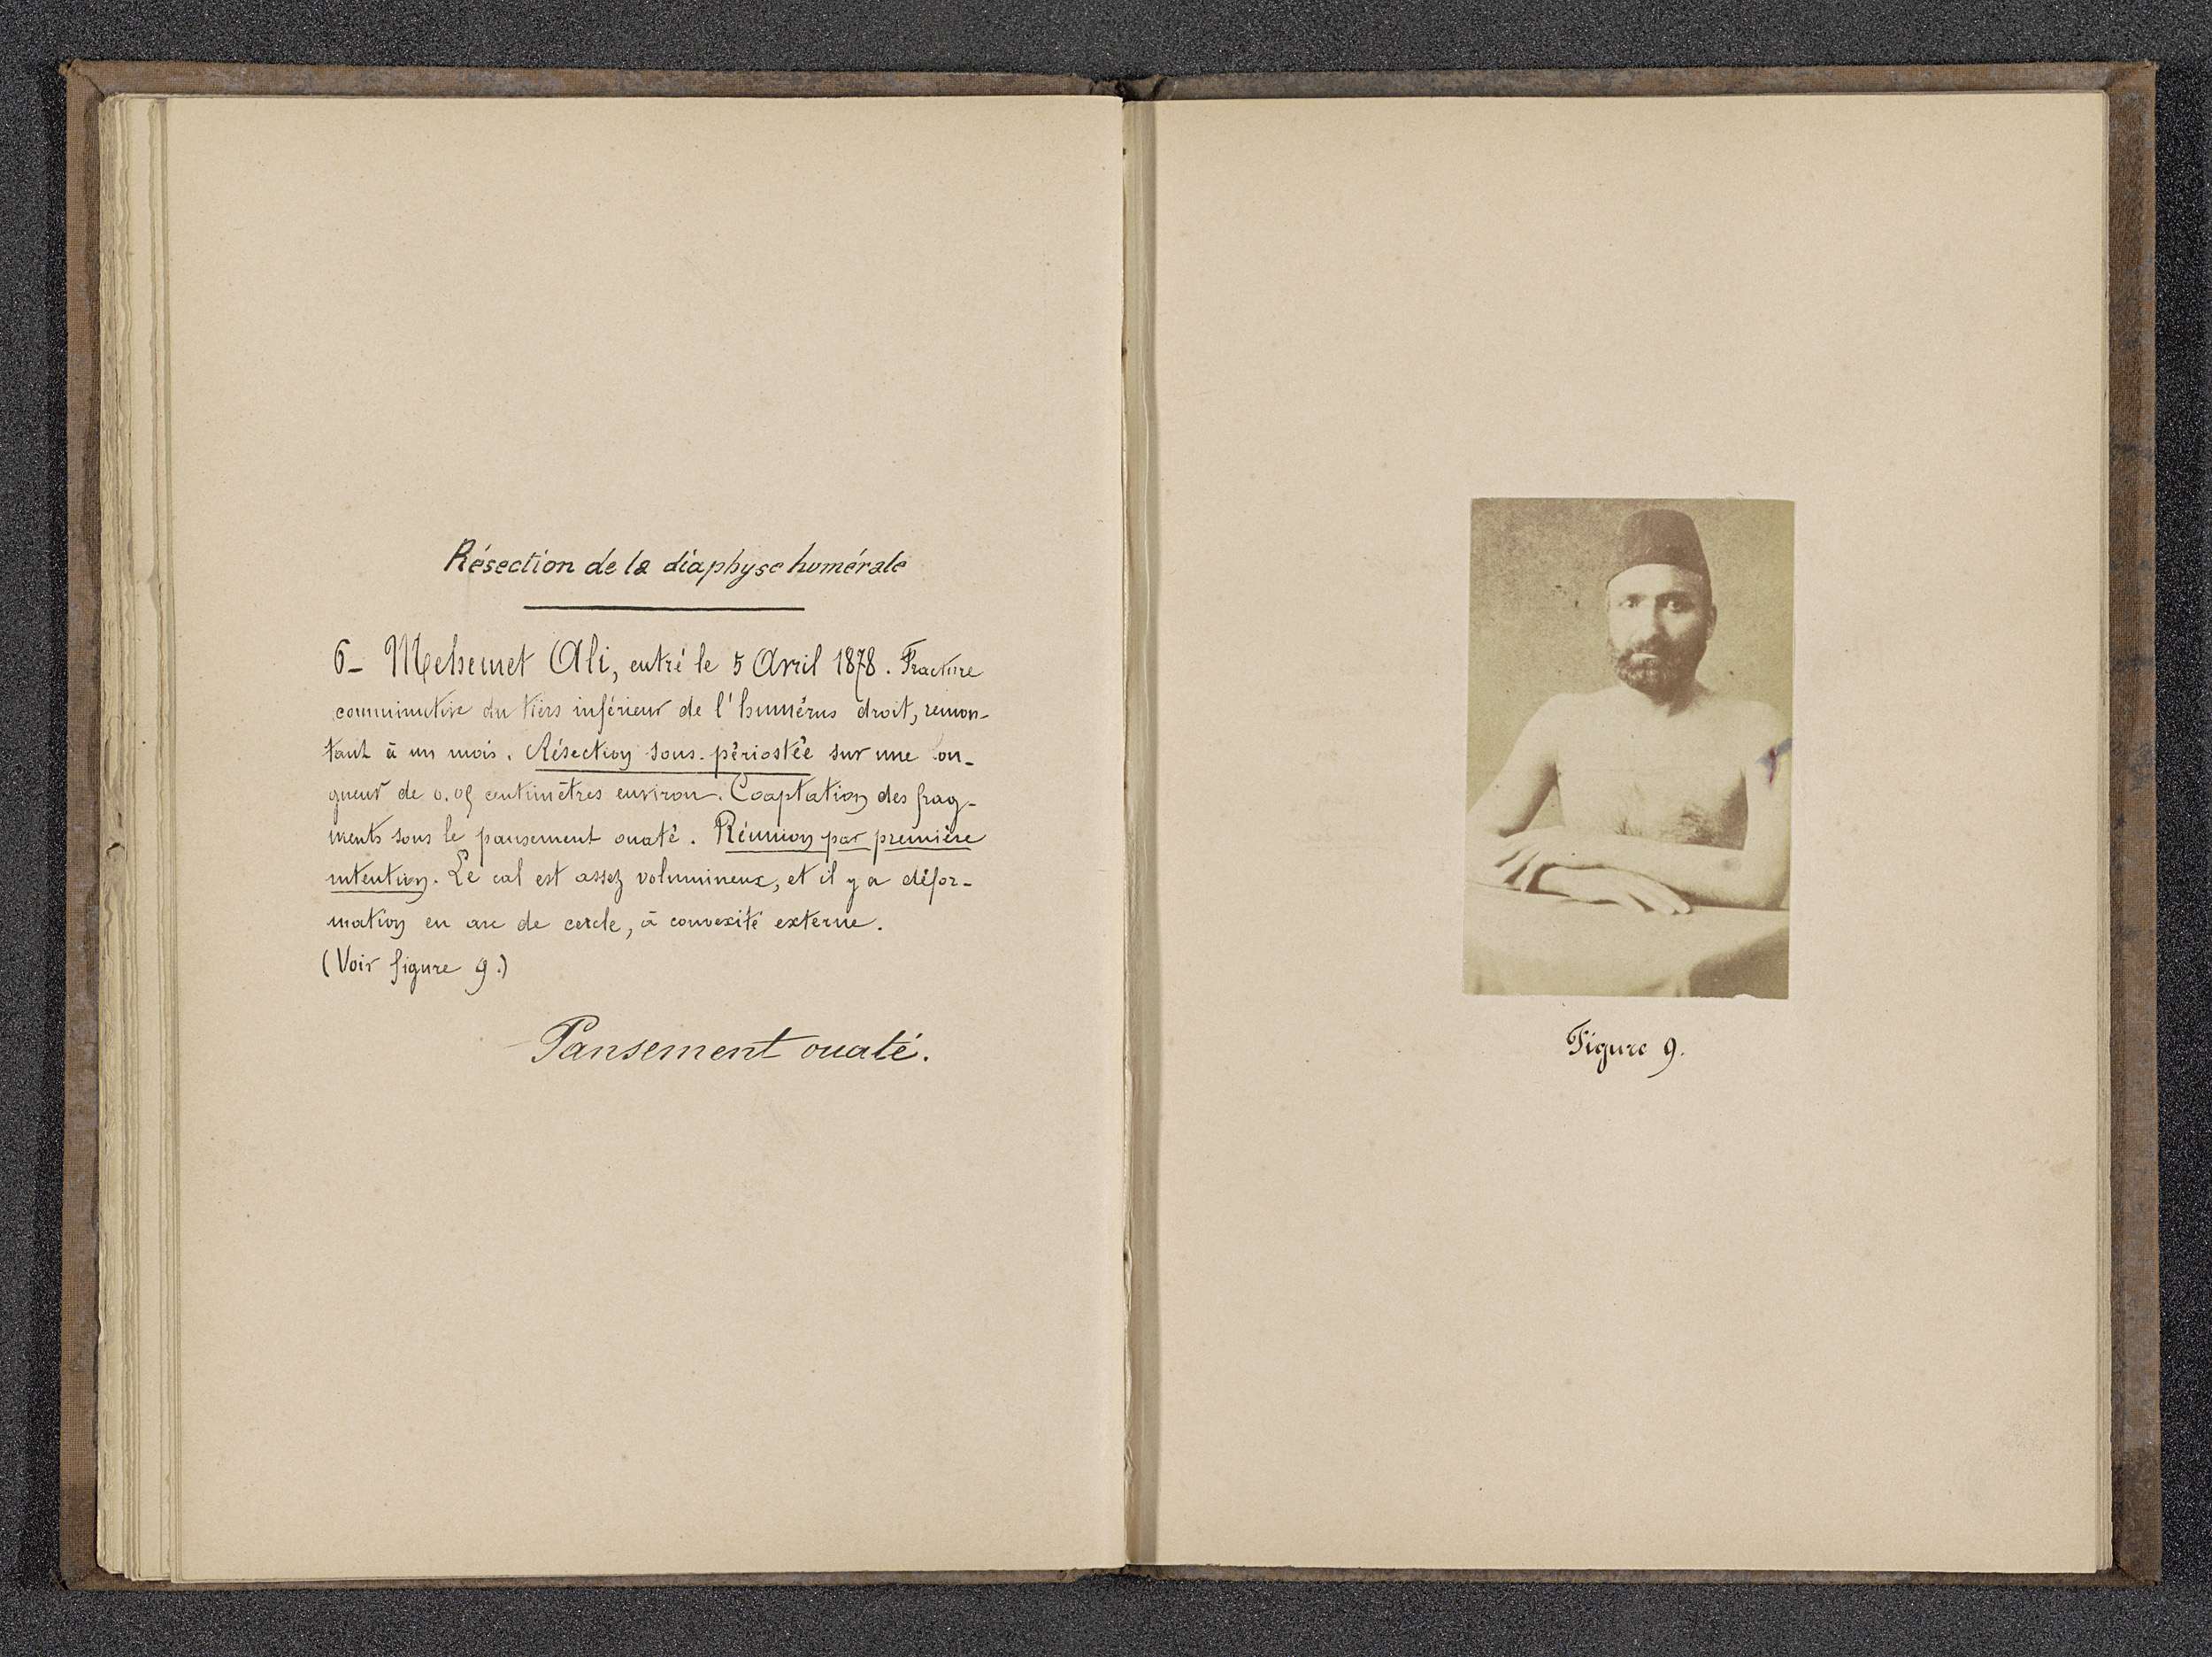 Résection de la diaphyse humérale
6_ Mehemet Ali, entré le 5 Avril 1878. Fracture
comminutive du tiers inférieur de l'humérus droit, remon-
tant à un mois. Résection sous-périostée sur une lon-
gueur de centimètres environ. Coaptation des frag-
ments sous le pansement ouaté. Réunion par première
intention. Le cal est assez volumineux, et il y a défor-
mation en arc de cercle, à convexité externe.
(Voir figure 9.)
Pansement ouaté.
Figure 9.